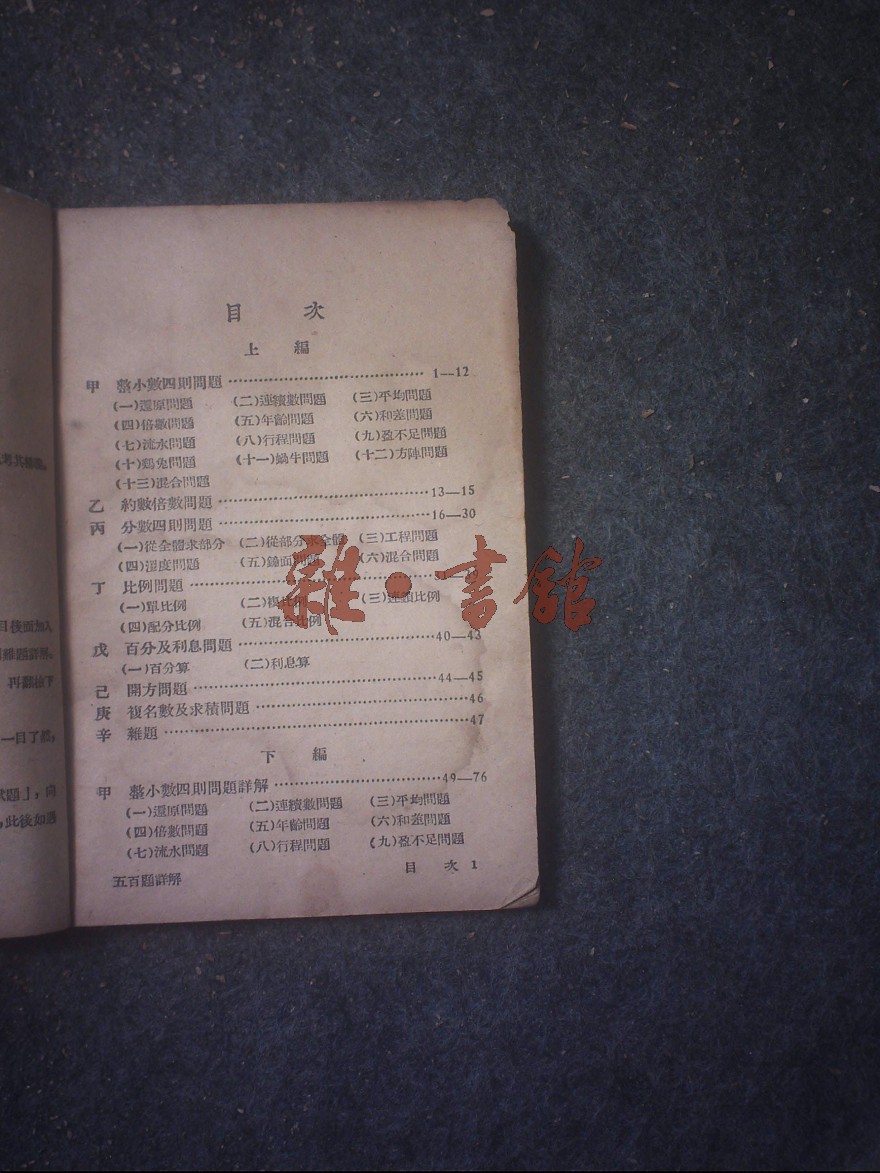 目 次
上 編
甲 整小數四則問題 1—12
(一)還原問題 (二)連續數問題 (三)平均問題
(四)倍數問題 (五)年齡問題 (六)和差問題
(七)流水問題 (八)行程問題 (九)盈不足問題
(十)鷄兔問題 (十一)蝸牛問題 (十二)方陣問題
(十三)混合問題
乙 約數倍數問題 13—15
丙 分數四則問題 16—30
(一)從全體求部分 (二)從部分求全體 (三)工程問題
(四)溫度問題 (五)鐘面問題 (六)混合問題
丁 比例問題
(一)單比例 (二)複比例 (三)連鎖比例
(四)配分比例 (五)混合比例
戊 百分及利息問題 40—43
(一)百分算 (二)利息算
己 開方問題 44—45
庚 複名數及求積問題 46
辛 雜題 47
下 編
甲 整小數四則問題詳解 49—76
(一)還原問題 (二)連續數問題 (三)平均問題
(四)倍數問題 (五)年齡問題 (六)和差問題
(七)流水問題 (八)行程問題 (九)盈不足問題
五百題詳解
目 次 1
雜·書館
目後面加入
題詳解。
再翻該下
一目了然;
題」,向
,此後如遇